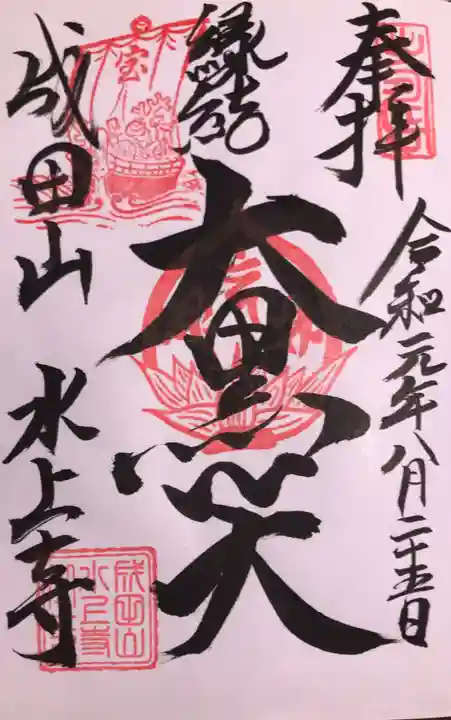 奉拝
令和元年八月二十五日
縁結
大黒天
宝
成田山
水上寺
成田山
水上寺